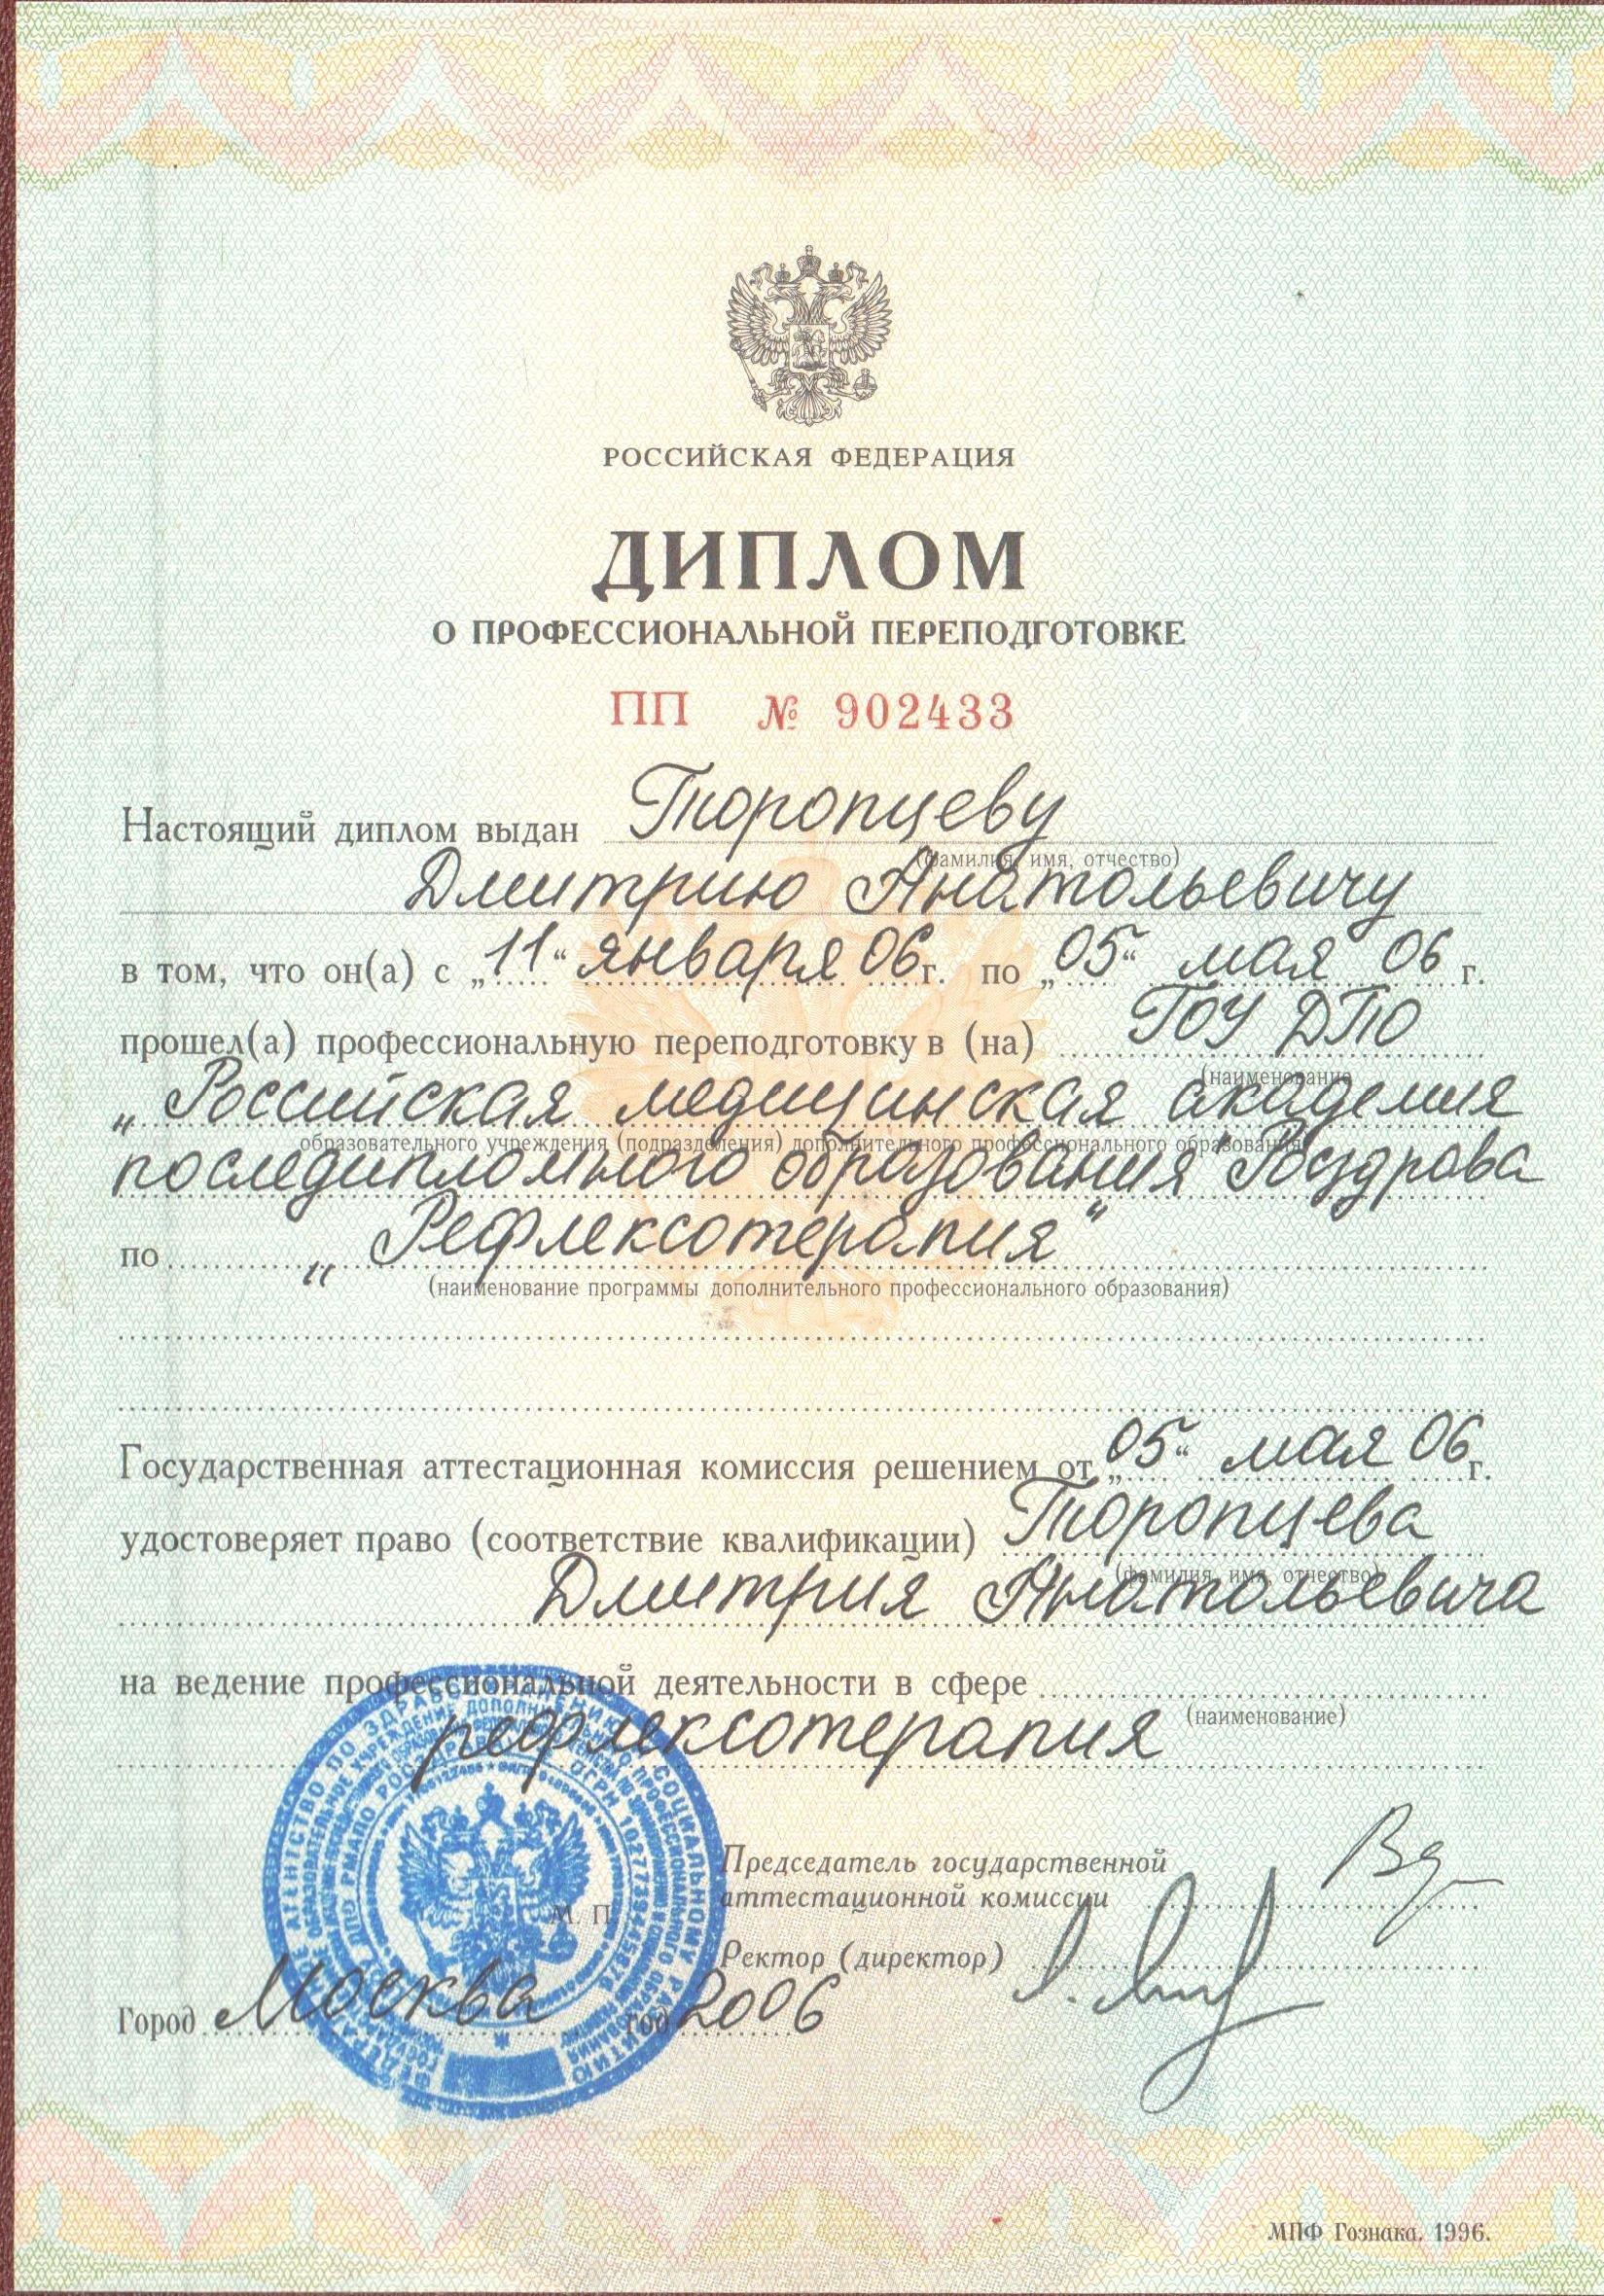 РОССИЙСКАЯ ФЕДЕРАЦИЯ
ДИПЛОМ
О ПРОФЕССИОНАЛЬНОЙ ПЕРЕПОДГОТОВКЕ
ПП № 902433
Настоящий диплом выдан Торопцеву
(фамилия, имя, отчество)
Дмитрию Анатольевичу
в том, что он(а) с „11“ января 06 г. по „05“ мая 06 г.
прошел(а) профессиональную переподготовку в (на) ГОУ ДПО
(наименование
„Российская медицинская академия
образовательного учреждения (подразделения) дополнительного профессионального образования)
последипломного образования Росздрава
по „Рефлексотерапия“
(наименование программы дополнительного профессионального образования)
Государственная аттестационная комиссия решением от „05“ мая 06 г.
удостоверяет право (соответствие квалификации) Торопцева
(фамилия, имя, отчество)
Дмитрия Анатольевича
на ведение профессиональной деятельности в сфере
(наименование)
рефлексотерапия
Председатель государственной
аттестационной комиссии
М. П.
Ректор (директор)
Город Москва год 2006
МПФ Гознака. 1996.